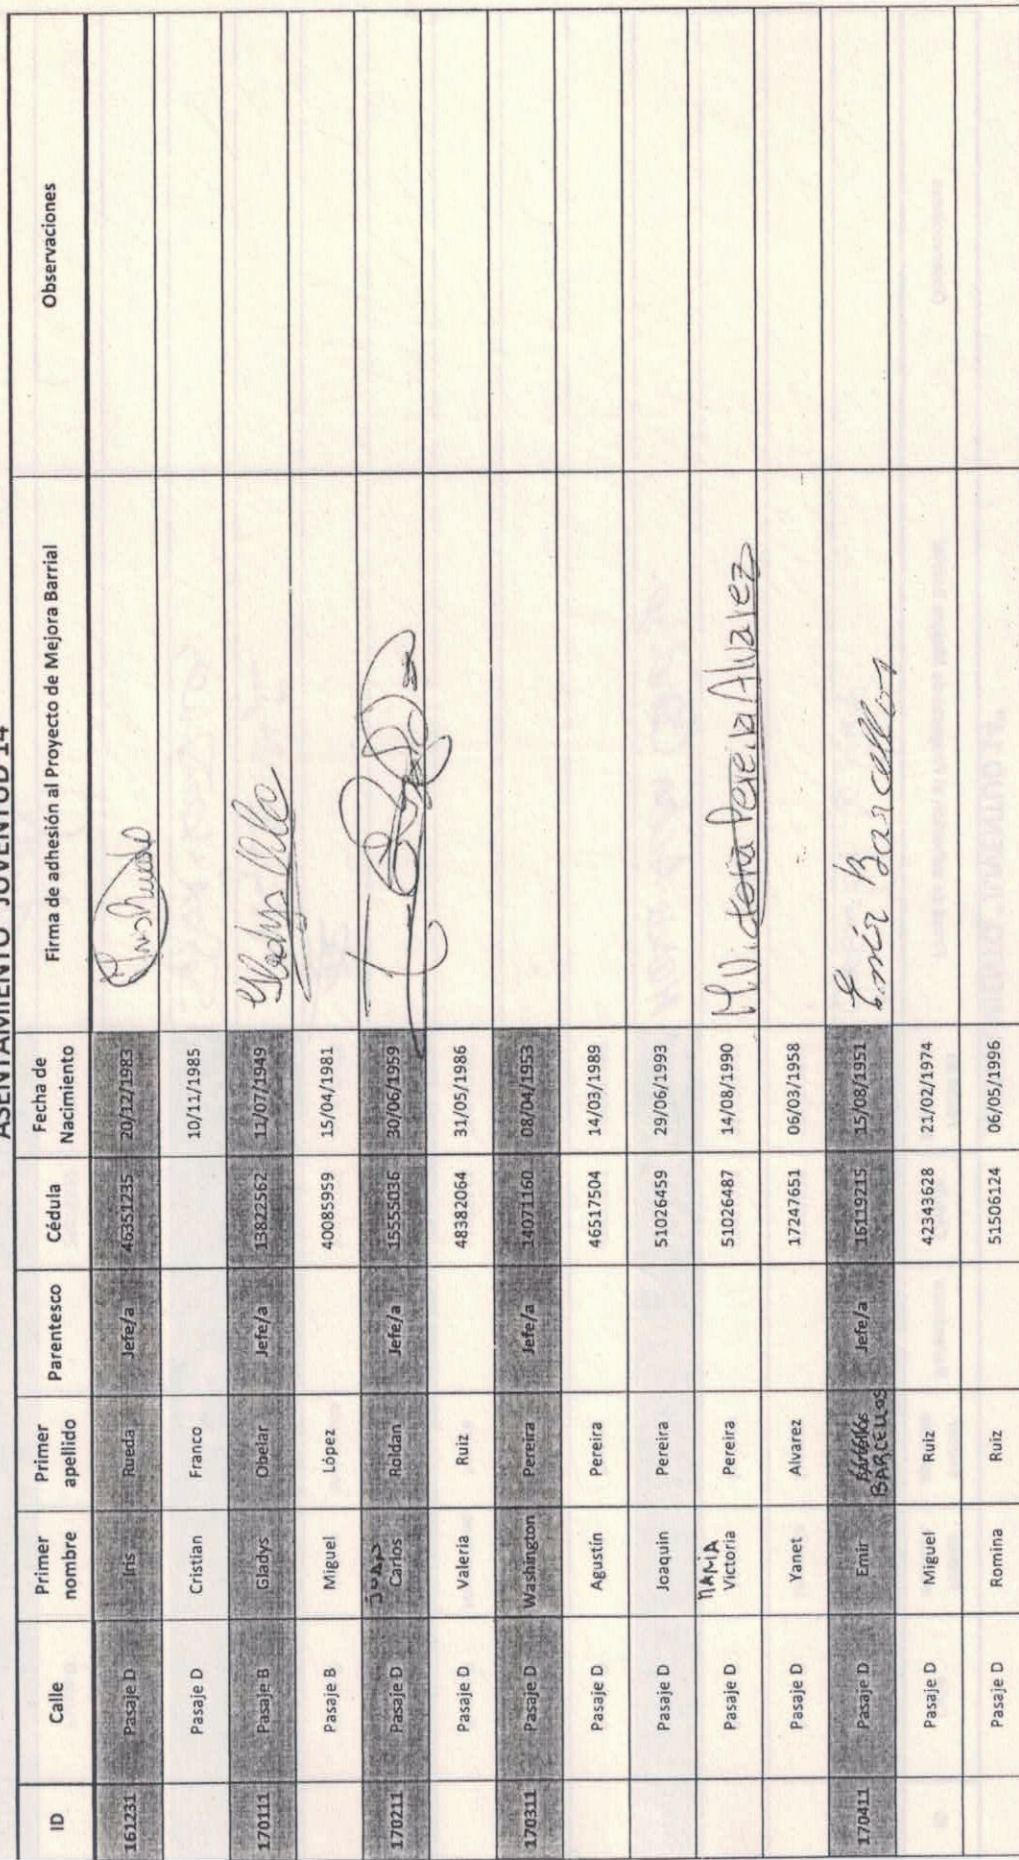 ASENTAMIENTO JUVENTUD 14
ID Calle Primer nombre Primer apellido Parentesco Cédula Fecha de Nacimiento Firma de adhesión al Proyecto de Mejora Barrial Observaciones
161231 Pasaje D Iris Rueda Jefe/a 46351235 20/12/1983 Iris Rueda
Pasaje D Cristian Franco 10/11/1985
170111 Pasaje B Gladys Obelar Jefe/a 13822562 11/07/1949 Gladys
Pasaje B Miguel López 40085959 15/04/1981
170211 Pasaje D JUAN Carlos Roldan Jefe/a 15555036 30/06/1959
Pasaje D Valeria Ruiz 48382064 31/05/1986
170311 Pasaje D Washington Pereira Jefe/a 14071160 08/04/1953
Pasaje D Agustín Pereira 46517504 14/03/1989
Pasaje D Joaquin Pereira 51026459 29/06/1993
Pasaje D MARIA Victoria Pereira 51026487 14/08/1990 M. Victoria Pereira Alvarez
Pasaje D Yanet Alvarez 17247651 06/03/1958
170411 Pasaje D Emir BARCELLOS Jefe/a 16119215 15/08/1951 Emir Barcellos
Pasaje D Miguel Ruiz 42343628 21/02/1974
Pasaje D Romina Ruiz 51506124 06/05/1996